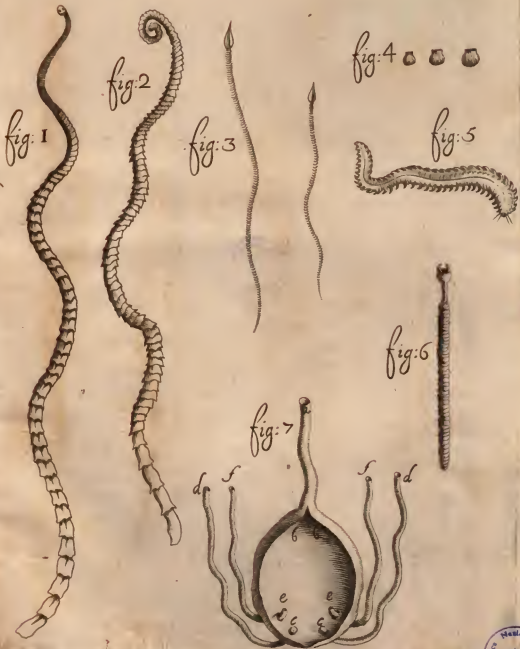 fig: 1
fig: 2
fig: 3
fig: 4
fig: 5
fig: 6
fig: 7
d f f d
6 6
e e